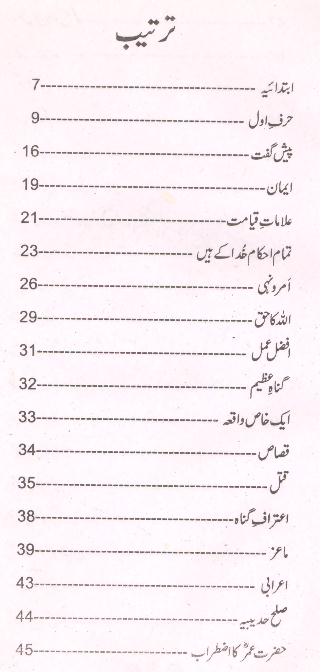 ترتیب
ابتدائیہ ------------------------------ 7
حرفِ اول ------------------------------ 9
پیش گفت ------------------------------ 16
ایمان ------------------------------ 19
علاماتِ قیامت ------------------------------ 21
تمام احکام خُدا کے ہیں ------------------------------ 23
اَمر و نہی ------------------------------ 26
اللہ کا حق ------------------------------ 29
افضل عمل ------------------------------ 31
گناہِ عظیم ------------------------------ 32
ایک خاص واقعہ ------------------------------ 33
قصاص ------------------------------ 34
قتل ------------------------------ 35
اعترافِ گناہ ------------------------------ 38
ماعز ------------------------------ 39
اعرابی ------------------------------ 43
صلح حدیبیہ ------------------------------ 44
حضرت عمرؓ کا اضطراب ------------------------------ 45